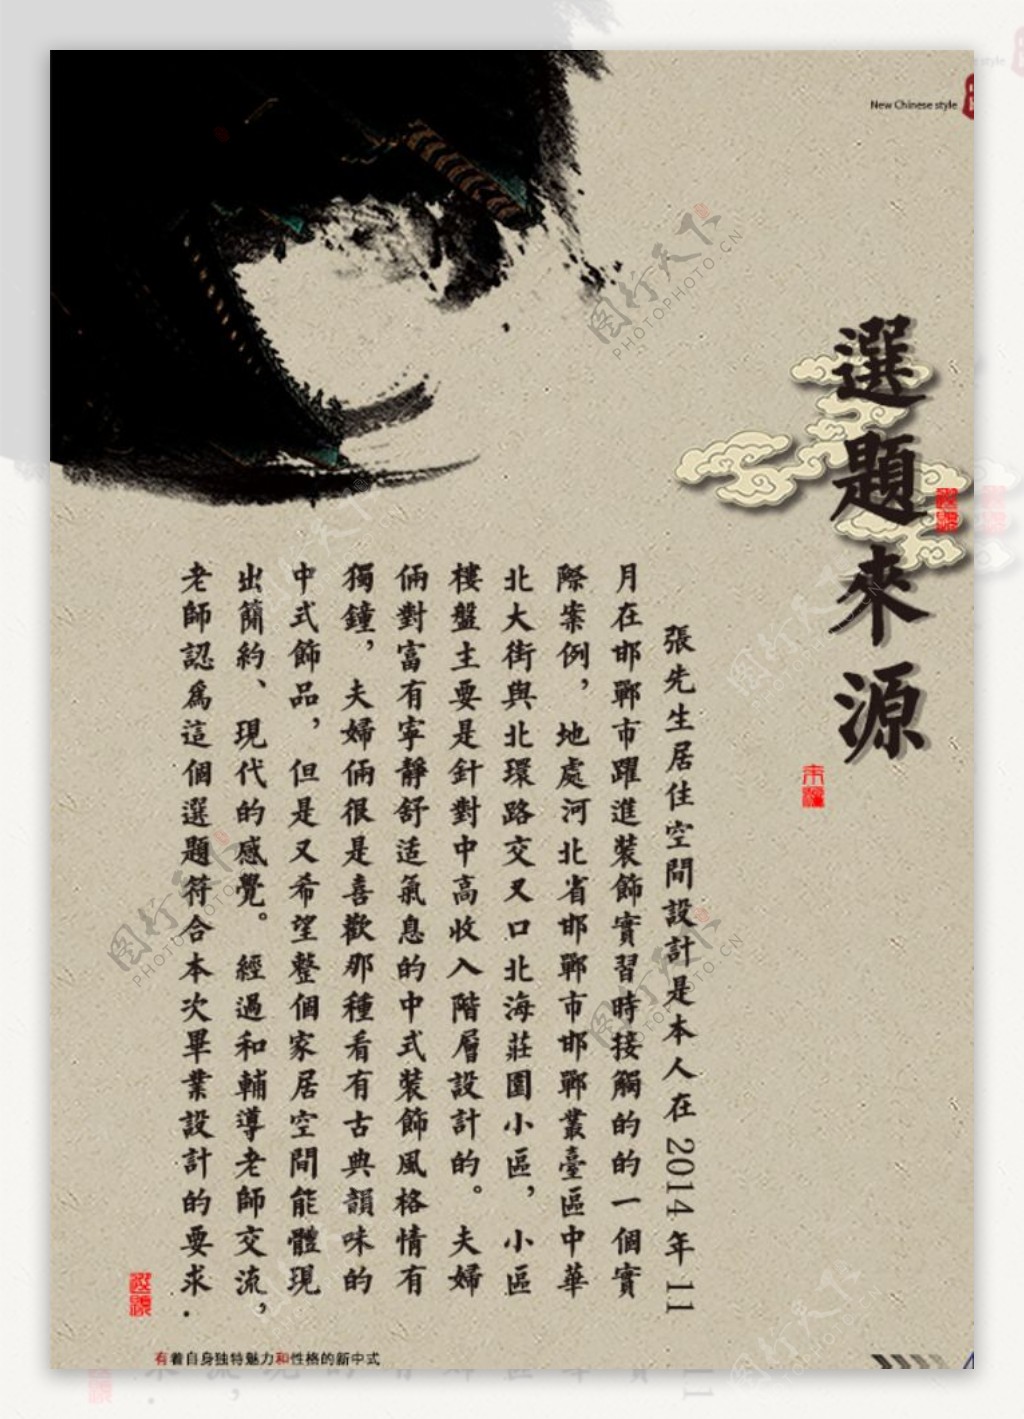 New Chinese style
選題來源
張先生居住空間設計是本人在2014年11
月在邯鄲市躍進裝飾實習時接觸的的一個實
際案例，地處河北省邯鄲市邯鄲叢臺區中華
北大街與北環路交叉口北海莊園小區，小區
樓盤主要是針對中高收入階層設計的。夫婦
倆對富有寧靜舒适氣息的中式裝飾風格情有
獨鐘，夫婦倆很是喜歡那種看有古典韻味的
中式飾品，但是又希望整個家居空間能體現
出簡約、現代的感覺。經過和輔導老師交流，
老師認爲這個選題符合本次畢業設計的要求.
有着自身独特魅力和性格的新中式